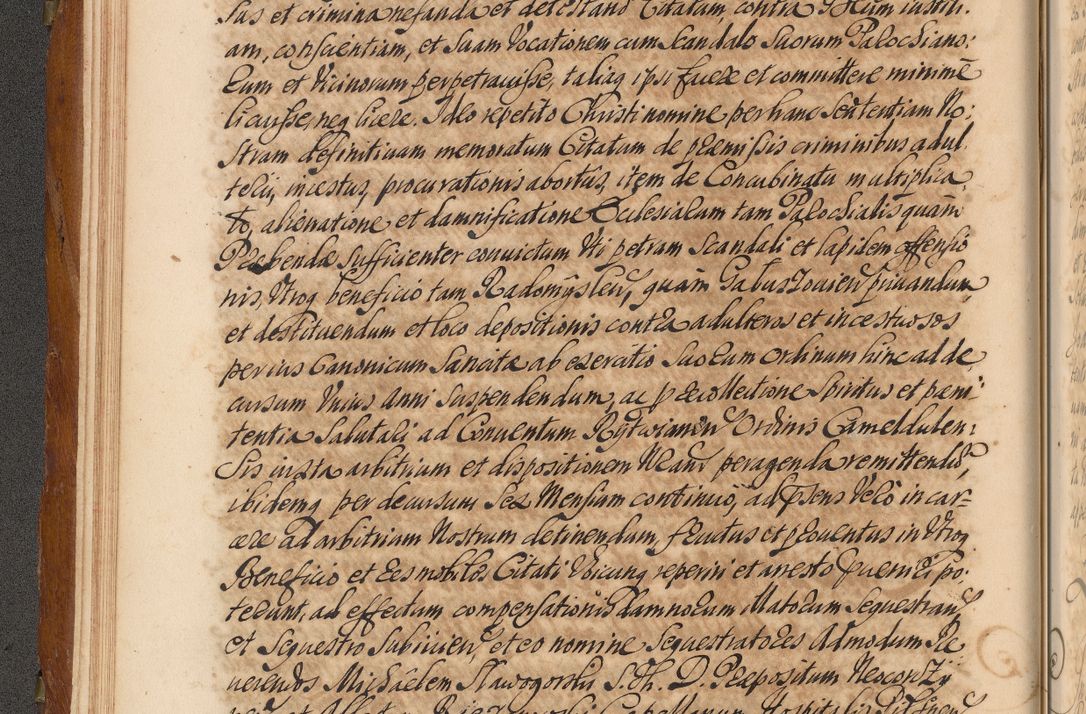 sas et crimina nefanda et detestand Citatum, contra DEum iustiti:
am, conscientiam, et suam Vocationem cum scandalo suorum Parochiano:
rum et Vicinorum perpetrauisse, taliaq ipsi facere et committere minimè
licuisse, neq licere. Ideo repetito Christi nomine per hanc Sententiam No:
stram definitiuam memoratum Citatum de praemissis criminibus adul
terii, incestus, procurationis abortûs, item de Concubinatu multiplica
to, alienatione et damnificatione Ecclesiarum tam Parochialis quàm
Praebendae sufficienter conuictum Vti petram scandali et lapidem offensio
nis, Vtroq beneficio tam Radomÿslen, quàm Gabuszouien priuandum
et destituendum et loco depositionis contra adulteros et incestuosos
per ius Canonicum sancitae ab exercitio suorum ordinum hinc ad de
cursum Vnius Anni suspendendum, ac p recollectione Spiritus et paeni
tentia salutari ad Conuentum Rÿtwianen Ordinis Camaldulen:
sis iuxta arbitrium et dispositionem Nram peragenda remittendũ,
ibidemq per decursum sex Mensium continuò, ad psens Verò in car=
cere ad arbitrium Nostrum detinendum, fructus et prouentus in Vtroq
Beneficio et res mobiles Citati Vbicunq reperiri et arresto pueniri po:
terunt, ad effectum compensationis damnorum Illatorum sequestran
et sequestro subiicien, et eo nomine sequestratores Admodum Re
uerendos Michäelem Sławogorski S. Th. D. Praepositum Neocorzÿ